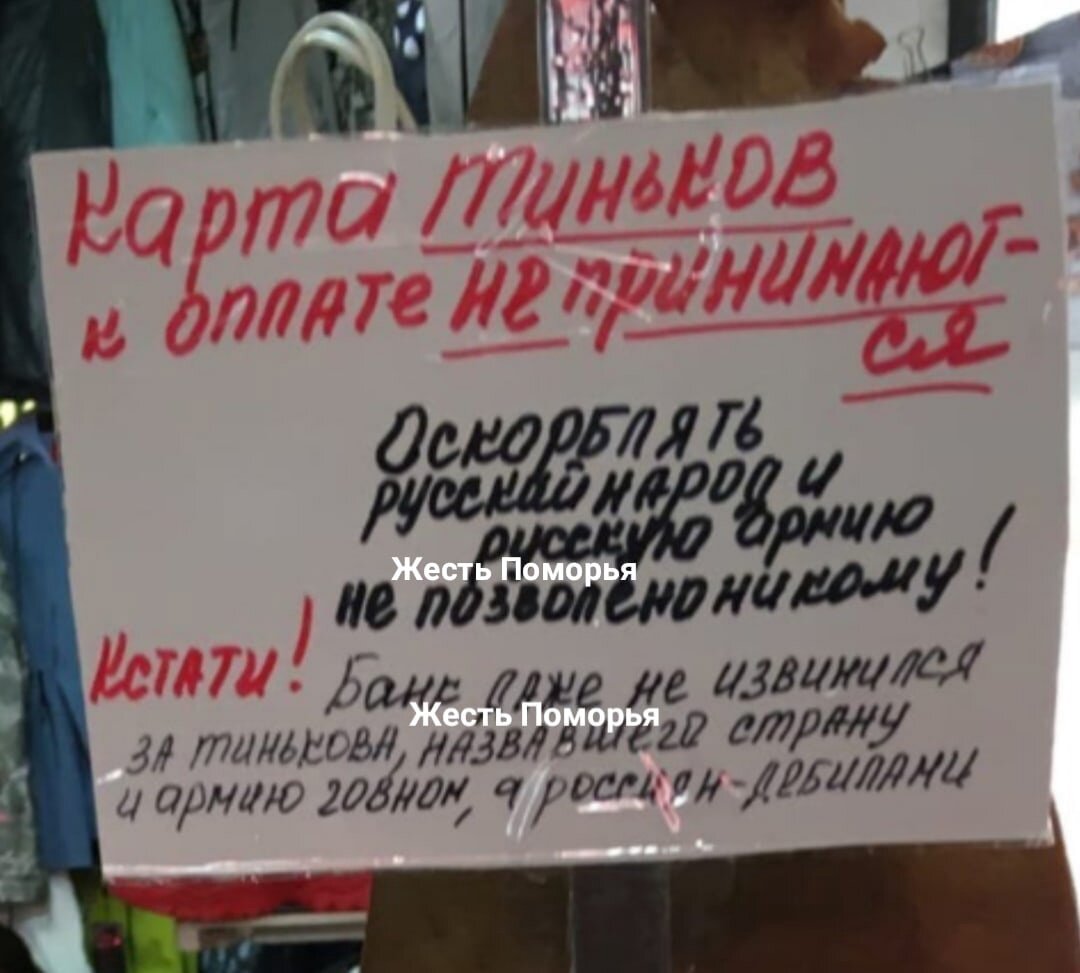 Карта Тиньков
к оплате не принимают-
ся
Оскорблять
русский народ и
русскую армию
Жесть Поморья
не позволено никому!
Кстати! Банк даже не извинился
Жесть Поморья
за тинькова, назвавшего страну
и армию говном, а россиян-дебилами